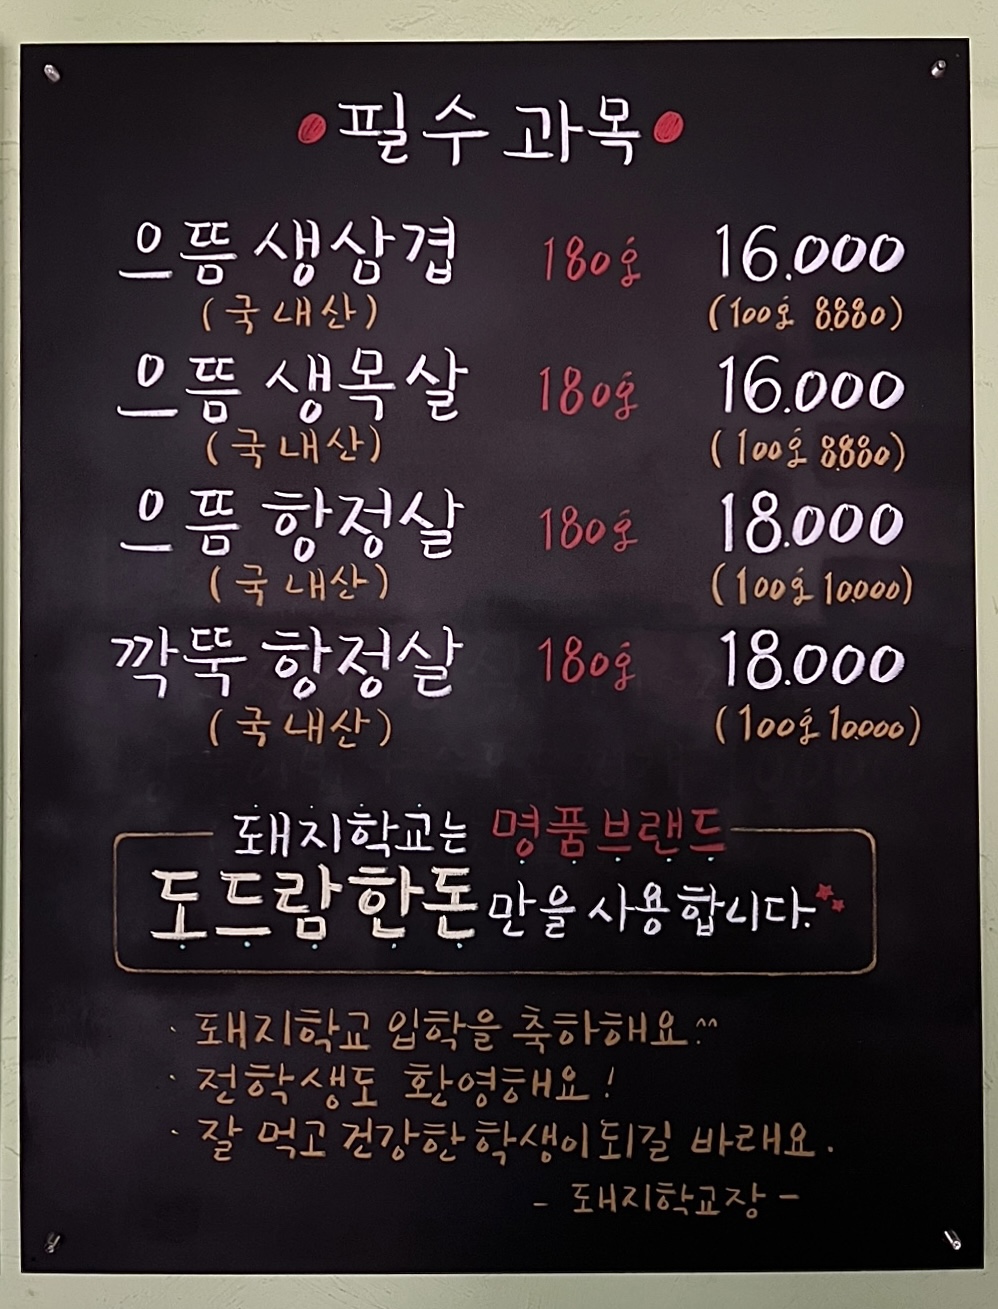 필수 과목
으뜸 생삼겹 180g 16.000
(국내산) (100g 8.880)
으뜸 생목살 180g 16.000
(국내산) (100g 8.880)
으뜸 항정살 180g 18.000
(국내산) (100g 10.000)
깍뚝 항정살 180g 18.000
(국내산) (100g 10.000)
돼지학교는 명품브랜드
도드람한돈만을 사용합니다.
· 돼지학교 입학을 축하해요.^^
· 전학생도 환영해요!
· 잘 먹고 건강한 학생이되길 바래요.
- 돼지학교장 -